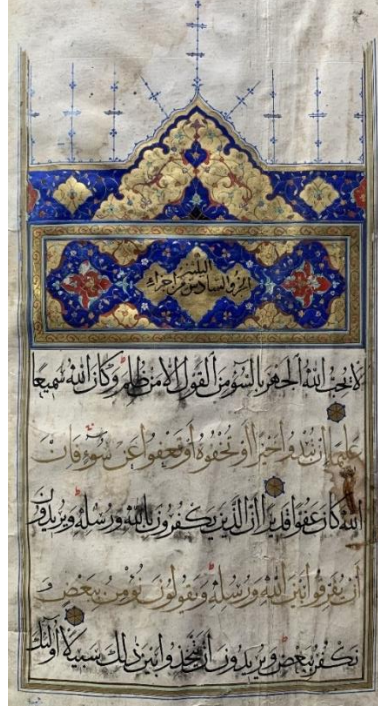 الجزو السادس من اجزاء
الثلثين
لا يُحِبُّ اللهُ الجَهرَ بالسُّوءِ مِنَ القَولِ إلا مَن ظُلِمَ وكانَ اللهُ سَميعًا
عَليمًا إن تُبدُوا خَيرًا أو تُخفُوهُ أو تَعفُوا عَن سُوءٍ فَإنَّ
اللهَ كانَ عَفُوًّا قَديرًا إنَّ الَّذينَ يَكفُرُونَ باللهِ ورُسُلِهِ ويُريدُونَ
أن يُفَرِّقُوا بَينَ اللهِ ورُسُلِهِ ويَقُولُونَ نُؤمِنُ ببَعضٍ و
نَكفُرُ ببَعضٍ ويُريدُونَ أن يَتَّخِذُوا بَينَ ذلِكَ سَبيلًا أولئِكَ